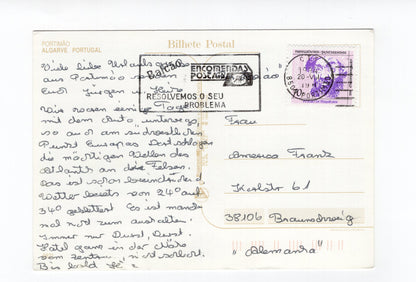 PORTIMÃO
ALGARVE PORTUGAL
Bilhete Postal
Viele liebe Urlaubsgrüße
aus Portimão senden
Euch Jürgen
Wir waren einige Tage
mit dem Auto unterwegs,
so auch am südwestlichen
Punkt Europas. Dort schlagen
die mächtigen Wellen des
Atlantik an die Felsen.
Das ist schon beeindruckend
Wetter bereits von 24° auf
34° geklettert. Es ist manch-
mal nicht zum aushalten.
Immer nur Durst, Durst.
Hotel ganz in der Nähe
vom Zentrum,
Bis bald
Balcão
ENCOMENDAS
POSTAIS
RESOLVEMOS O SEU
PROBLEMA
Frau
Frantz
61
38106 Braunschweig
"Alemanha"